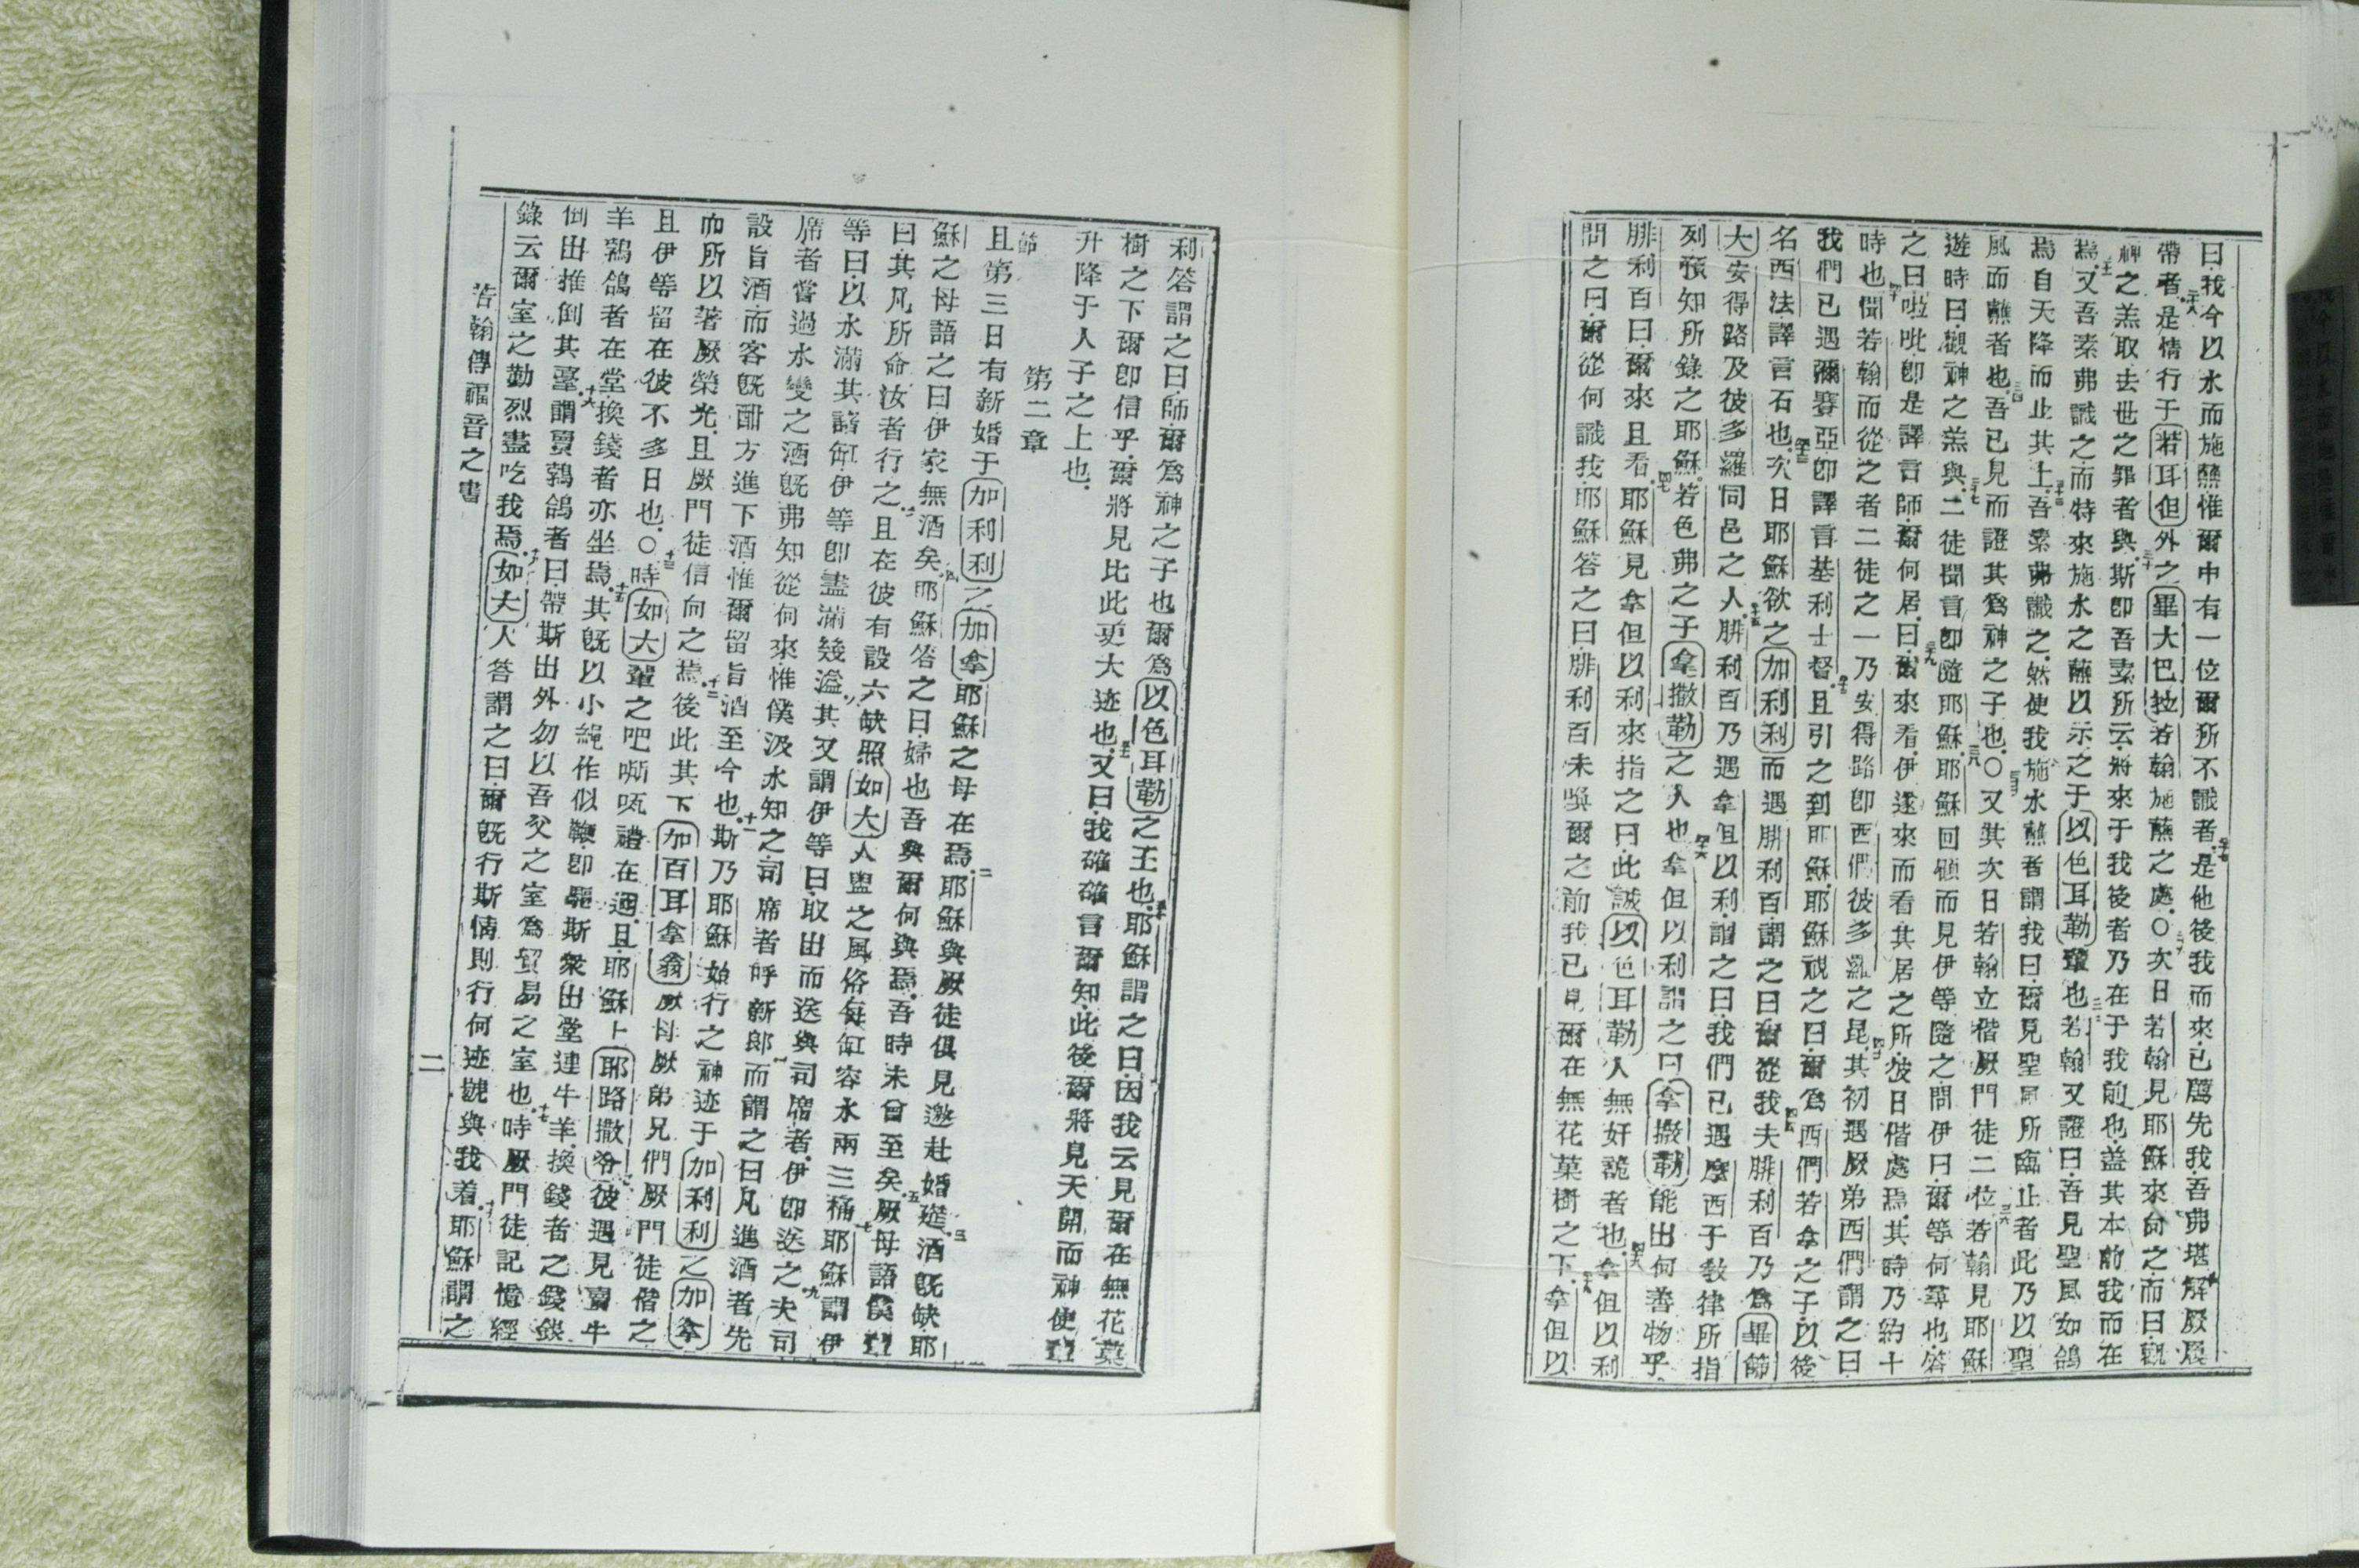 曰我今以水而施蘸惟爾中有一位爾所不識者是他後我而來已薦先我吾弗堪解厥屨
帶者是情行于若耳但外之畢大巴拉若翰施蘸之處○次日若翰見耶穌來向之而曰觀
神之羔取去世之罪者與斯卽吾素所云將來于我後者乃在于我前也蓋其本前我而在
焉又吾素弗識之而特來施水之蘸以示之于以色耳勒輩也若翰又證曰吾見聖風如鴿
焉自天降而止其上吾素弗識之然使我施水蘸者謂我曰爾見聖風所臨止者此乃以聖
風而蘸者也吾已見而證其爲神之子也○又其次日若翰立偕厥門徒二位若翰見耶穌
遊時曰觀神之羔與二徒聞言卽隨耶穌耶穌回顧而見伊等隨之問伊曰爾等何尋也答
之曰啦吡卽是譯言師爾何居曰爾來看伊遂來而看其居之所彼日偕處焉其時乃約十
時也聞若翰而從之者二徒之一乃安得路卽西們彼多羅之昆其初遇厥弟西們謂之曰
我們已遇彌賽亞卽譯言基利士督且引之到耶穌耶穌視之曰爾爲西們若拿之子以後
名西法譯言石也次日耶穌欲之加利利而遇腓利百謂之曰爾從我夫腓利百乃爲畢篩
大安得路及彼多羅同邑之人腓利百乃遇拿但以利謂之曰我們已遇摩西于教律所指
列預知所錄之耶穌若色弗之子拿撒勒之人也拿但以利謂之曰拿撒勒能出何善物乎
腓利百曰爾來且看耶穌見拿但以利來指之曰此誠以色耳勒人無奸詭者也拿但以利
問之曰爾從何識我耶穌答之曰腓利百未喚爾之前我已見爾在無花菓樹之下拿但以
利答謂之曰師爾爲神之子也爾爲以色耳勒之王也耶穌謂之曰因我云見爾在無花菓
樹之下爾卽信乎爾將見比此更大迹也又曰我確確言爾知此後爾將見天開而神使輩
升降于人子之上也
第二章
節
且第三日有新婚于加利利之加拿耶穌之母在焉耶穌與厥徒俱見邀赴婚筵酒旣缺耶
穌之母語之曰伊家無酒矣耶穌答之曰婦也吾與爾何與焉吾時未曾至矣厥母語僕輩
曰其凡所命汝者行之且在彼有設六缺照如大人盥之風俗每缸容水兩三桶耶穌謂伊
等曰以水滿其諸缸伊等卽盡滿幾溢其又謂伊等曰取出而送與司席者伊卽送之夫司
席者嘗過水變之酒旣弗知從何來惟僕汲水知之司席者呼新郎而謂之曰凡進酒者先
設旨酒而客旣酣方進下酒惟爾留旨酒至今也斯乃耶穌始行之神迹于加利利之加拿
而所以著厥榮光且厥門徒信向之焉後此其下加百耳拿翁厥母厥弟兄們厥門徒偕之
且伊等留在彼不多日也○時如大輩之吧嘶咓禮在邇且耶穌上耶路撒冷彼遇見賣牛
羊鶉鴿者在堂換錢者亦坐焉其旣以小繩作似鞭卽驅斯衆出堂連牛羊換錢者之錢錁
倒出推倒其臺謂賣鶉鴿者曰帶斯出外勿以吾父之室爲貿易之室也時厥門徒記憶經
錄云爾室之勤烈盡吃我焉如大人答謂之曰爾旣行斯情則行何迹號與我着耶穌謂之
若翰傳福音之書
二